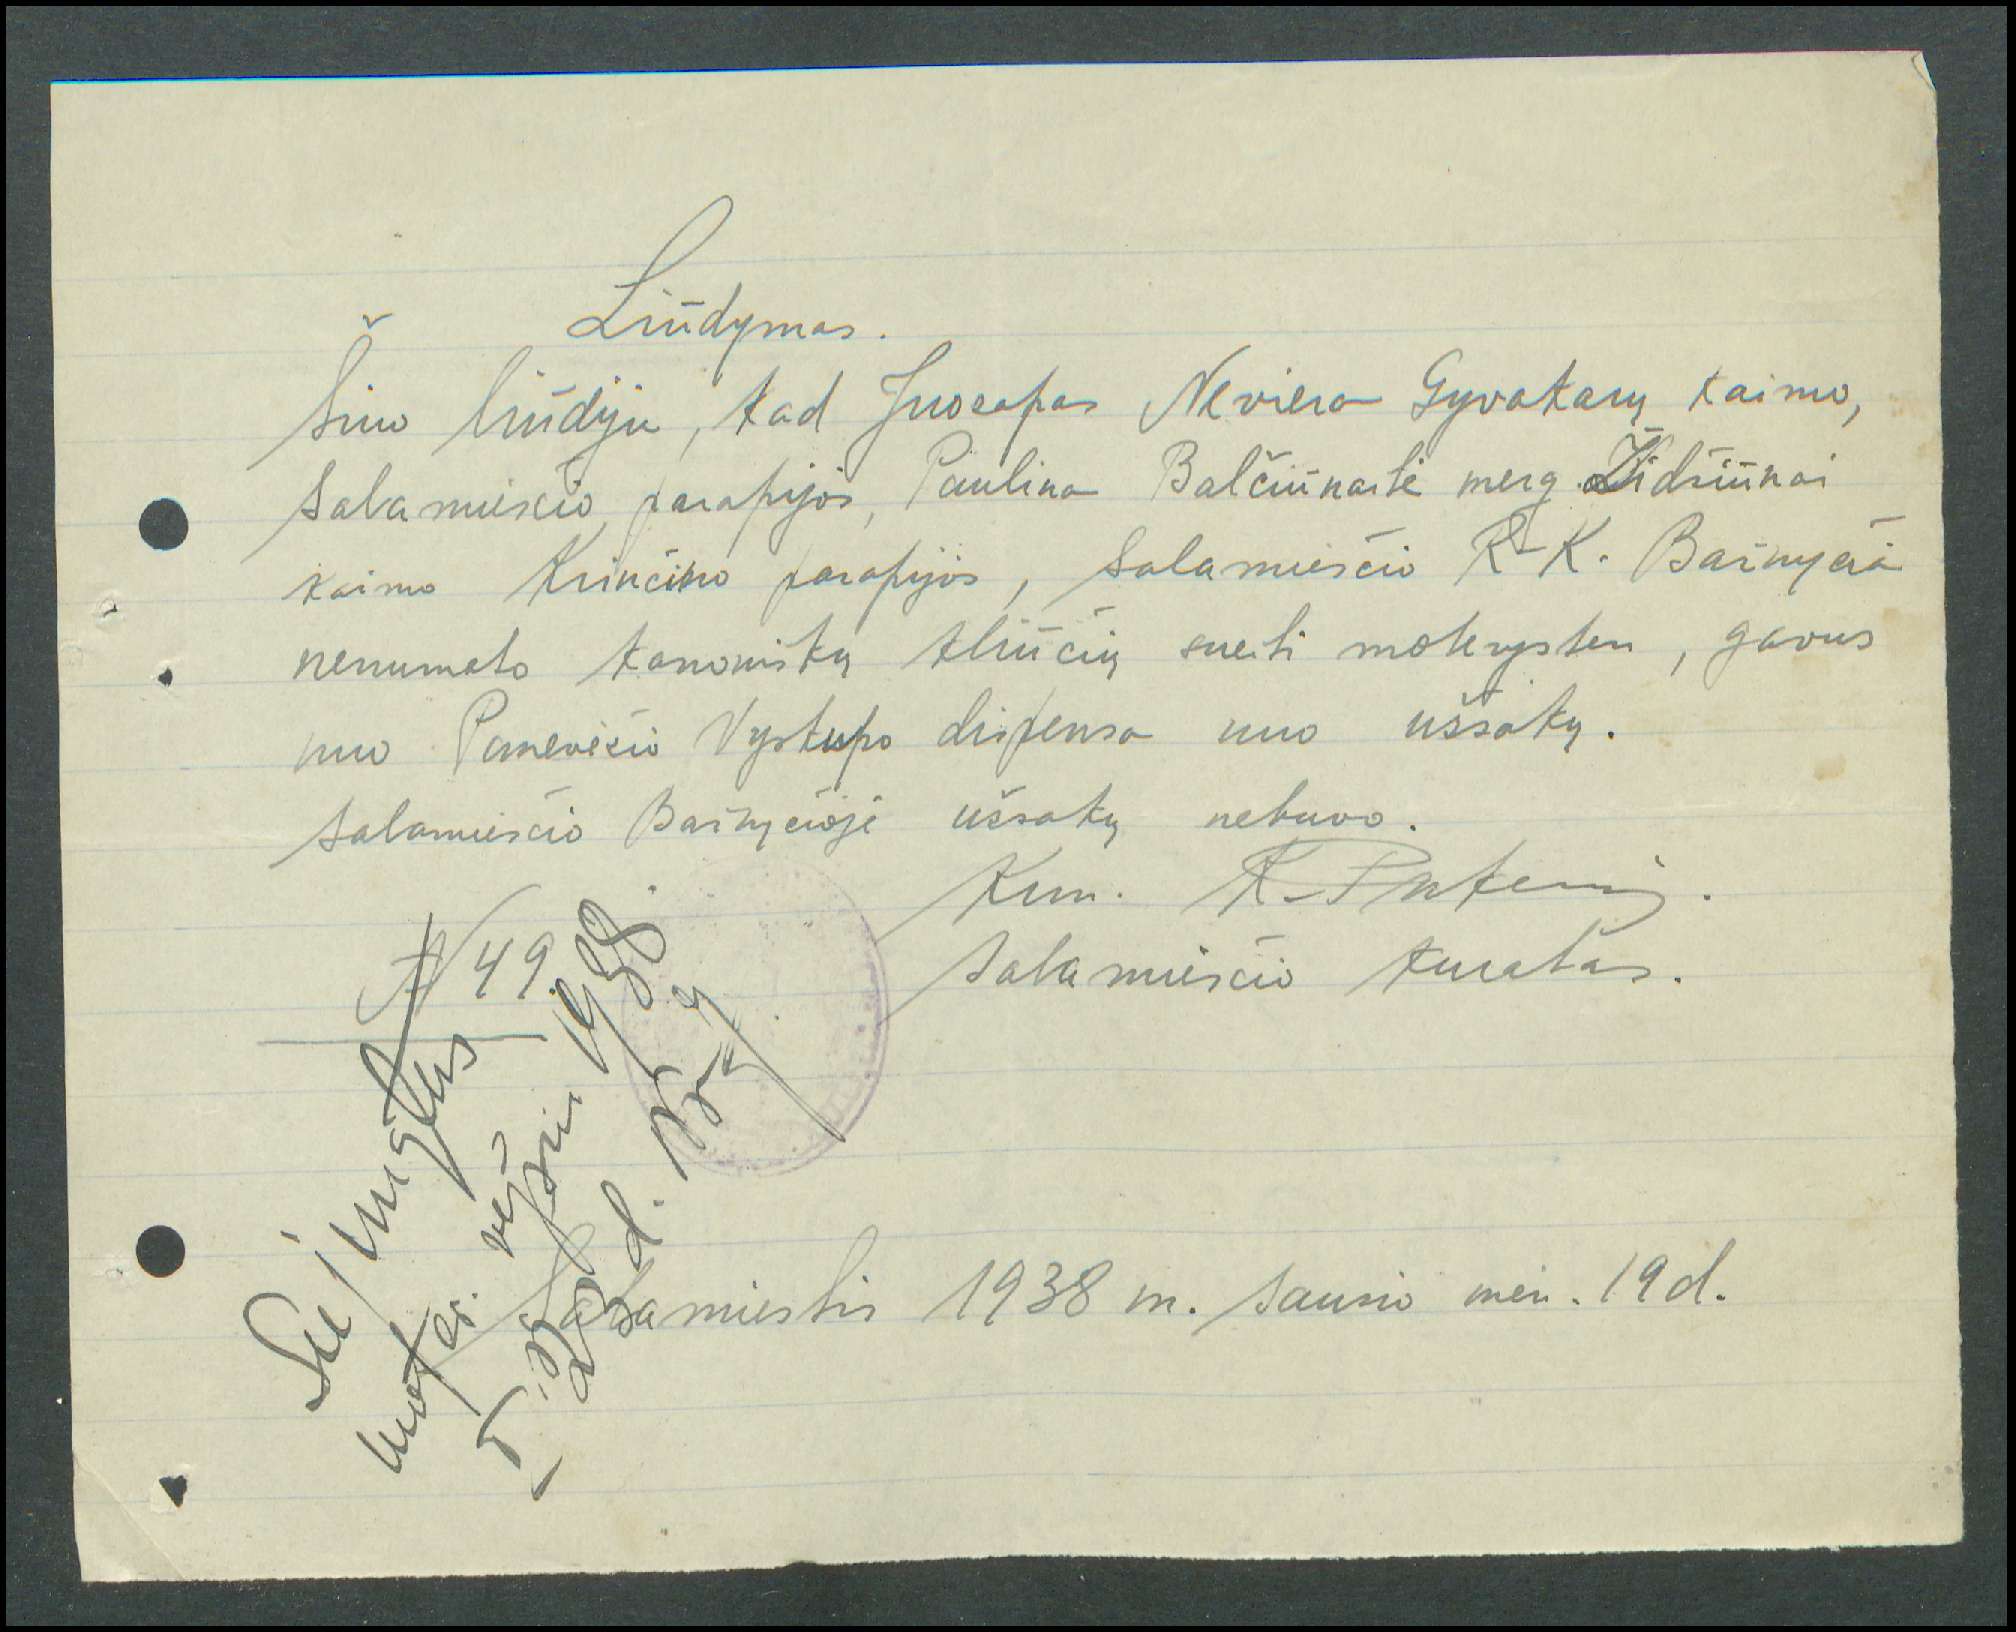 Liūdymas.
Šiuo liūdiju, kad Juozapas Neviera Gyvakarų kaimo,
Salamiesčio parapijos, Paulina Balčiūnaitė merg. Židžiūnai
kaimo Krinčino parapijos, Salamiesčio R-K. Bažnyčia
nenumato kanoniškų kliūčių sueiti moterysten, gavus
nuo Panevėžio Vyskupo dispensa nuo užsakų.
Salamiesčio Bažnyčioje užsakų nebuvo.
Kun. K.
Salamiesčio kuratas.
N 49.
Sujungtus
moter. ryšiu 1938.
I. 20 d.
Salamiestis 1938 m. Sausio mėn. 19 d.